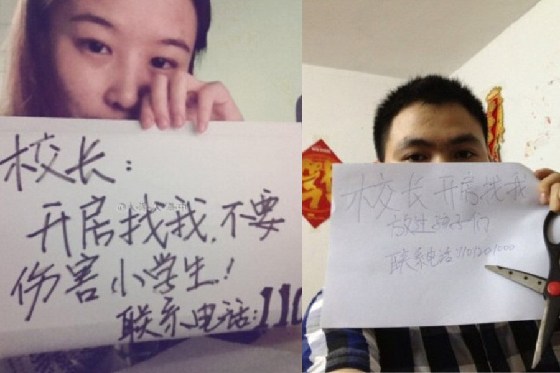 校长:
开房找我,不要
伤害小学生!
联系电话:110
校长 开房找我
放过孩子们
联系电话:110